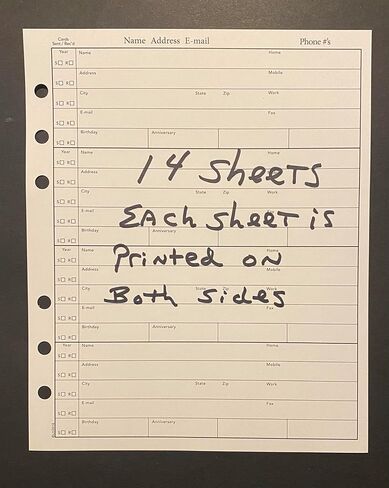 Cards
Sent / Rec'd
Name Address E-mail
Phone #'s
Year Name Home
S□ R□
Address Mobile
S□ R□
City State Zip Work
S□ R□
E-mail Fax
S□ R□
Birthday Anniversary
S□ R□
Year Name Home
14 Sheets
S□ R□
Address
S□ R□
City State Zip Work
S□ R□
E-mail
Each sheet is
S□ R□
Birthday Anniversary
S□ R□
Year Name Home
Printed on
S□ R□
Address Mobile
S□ R□
City State Zip Work
Both sides
S□ R□
E-mail Fax
S□ R□
Birthday Anniversary
S□ R□
Year Name Home
S□ R□
Address Mobile
S□ R□
City State Zip Work
S□ R□
E-mail Fax
S□ R□
Birthday Anniversary
S□ R□